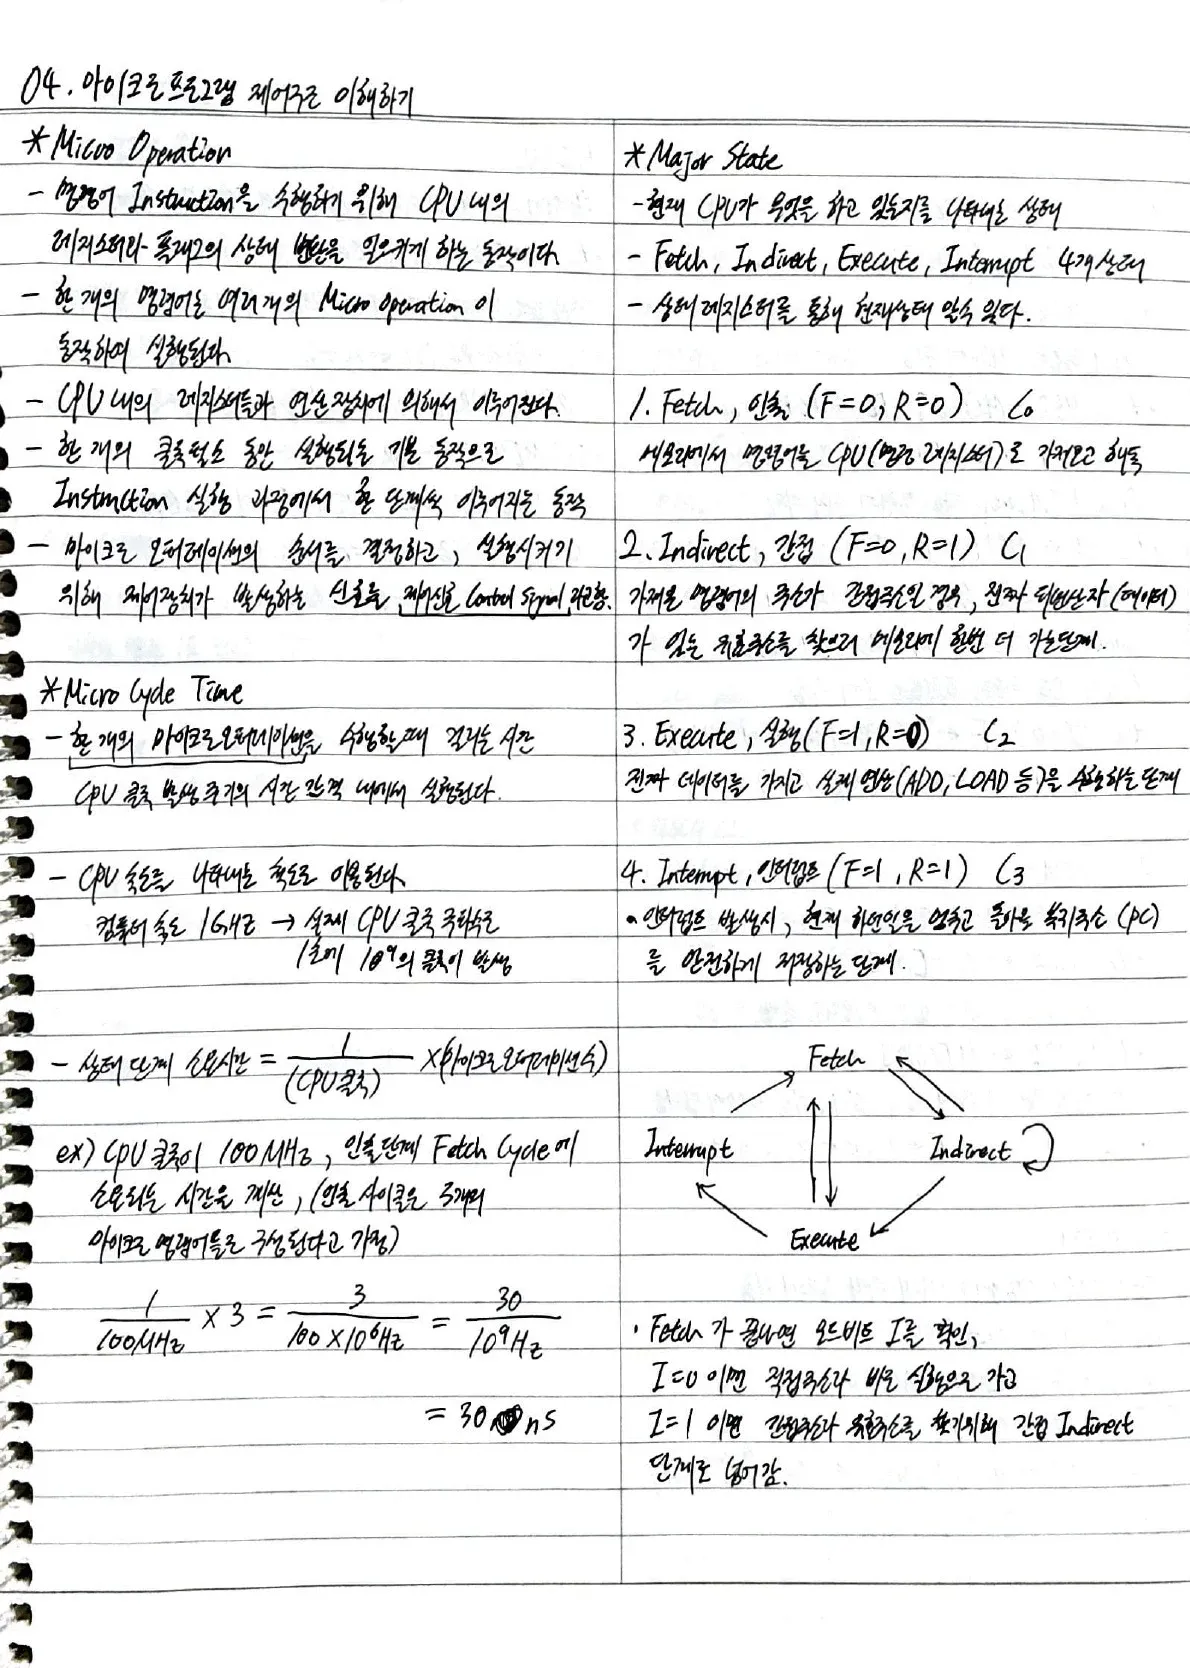 04. 마이크로프로그램 제어구조 이해하기
* Micro Operation
- 명령어 Instruction을 수행하기 위해 CPU 내의
레지스터와 플래그의 상태 변환을 일으키게 하는 동작이다.
- 한 개의 명령어는 여러 개의 Micro operation이
동작하여 실행된다.
- CPU 내의 레지스터들과 연산장치에 의해서 이루어진다.
- 한 개의 클록펄스 동안 실행되는 기본 동작으로
Instruction 실행 과정에서 한 단계씩 이루어지는 동작
- 마이크로 오퍼레이션의 순서를 결정하고, 실행시키기
위해 제어장치가 발생하는 신호를 제어신호 Control Signal 라고함.
* Micro Cycle Time
- 한 개의 마이크로오퍼레이션을 수행할 때 걸리는 시간
CPU 클록 발생 주기의 시간 간격 내에서 실행된다.
- CPU 속도를 나타내는 척도로 이용된다.
컴퓨터 속도 1GHz → 실제 CPU 클록 주파수로
1초에 10⁹의 클록이 발생
- 상태 단계 소요시간 = 1/(CPU 클록) × (마이크로오퍼레이션수)
ex) CPU 클록이 100MHz, 인출단계 Fetch Cycle에
소요되는 시간을 계산, (인출 사이클은 3개의
마이크로 명령어들로 구성된다고 가정)
1/100MHz × 3 = 3/100×10⁶Hz = 30/10⁹Hz
= 30 ns
* Major State
- 현재 CPU가 무엇을 하고 있는지를 나타내는 상태
- Fetch, Indirect, Execute, Interrupt 4개 상태
- 상태 레지스터를 통해 현재상태 알수 있다.
1. Fetch, 인출 (F=0, R=0) C₀
메모리에서 명령어를 CPU(명령 레지스터)로 가져오고 해독
2. Indirect, 간접 (F=0, R=1) C₁
가져온 명령어의 주소가 간접주소일 경우, 진짜 피연산자(데이터)
가 있는 유효주소를 찾으러 메모리에 한번 더 가는단계.
3. Execute, 실행 (F=1, R=0) C₂
진짜 데이터를 가지고 실제 연산(ADD, LOAD 등)을 수행하는 단계
4. Interrupt, 인터럽트 (F=1, R=1) C₃
• 인터럽트 발생시, 현재 하던일을 멈추고 돌아올 복귀주소 (PC)
를 안전하게 저장하는 단계.
Fetch
Interrupt
Indirect
Execute
• Fetch가 끝나면 모드비트 I를 확인,
I=0 이면 직접주소라 바로 실행으로 가고
I=1 이면 간접주소라 유효주소를 찾기위해 간접 Indirect
단계로 넘어감.